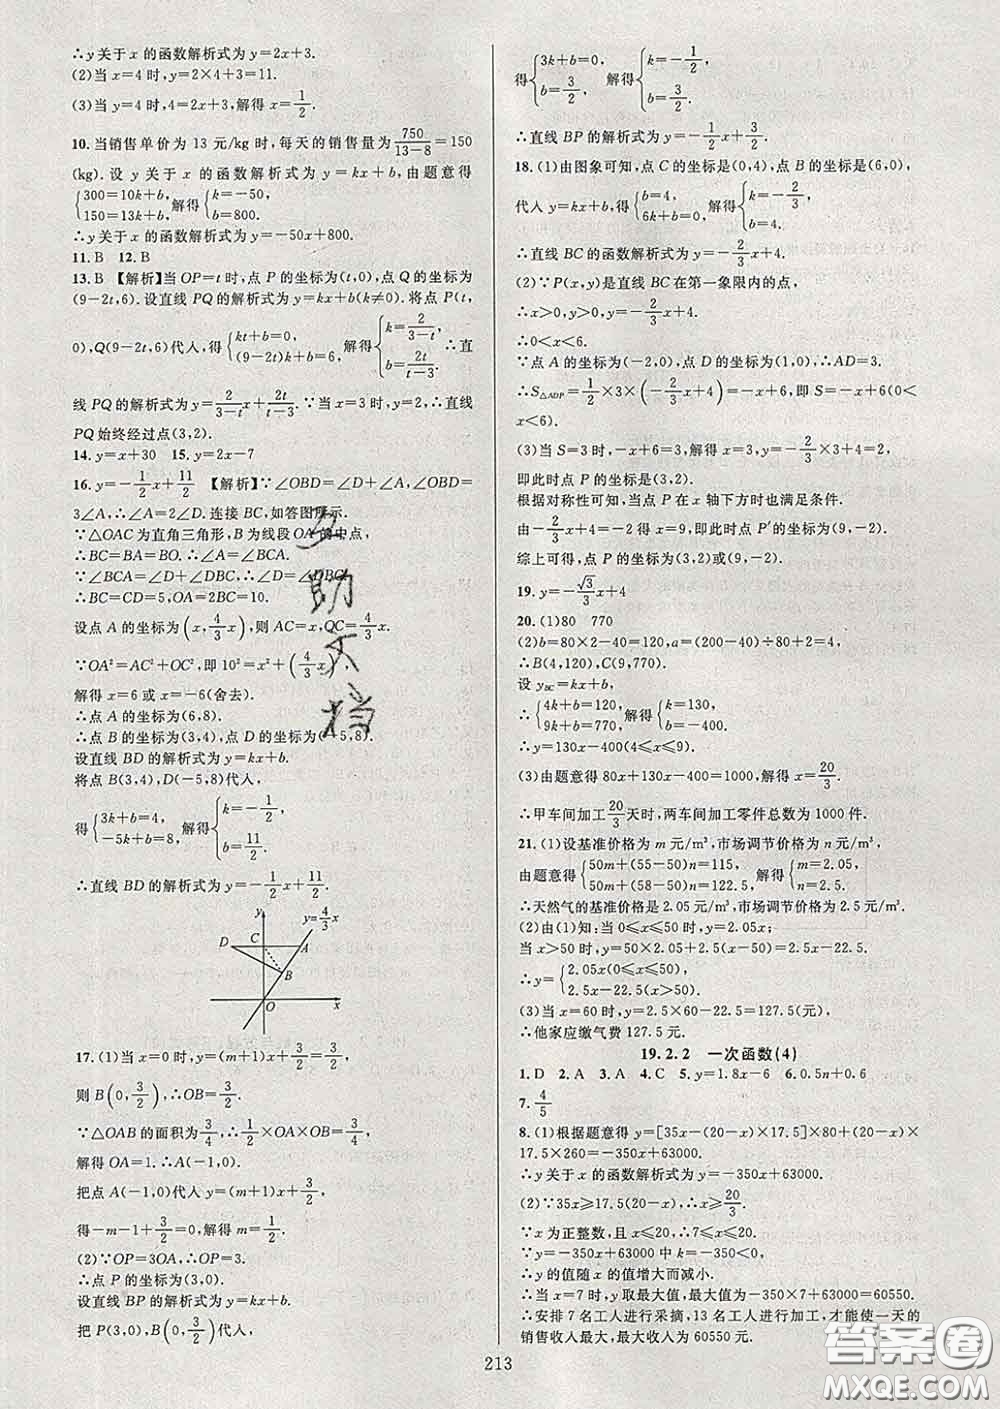 ∴y关于 x 的函数解析式为 y=2x+3.
(2)当 x=4 时,y=2×4+3=11.
(3)当 y=4 时,4=2x+3,解得 x=1/2.
10. 当销售单价为 13 元/kg 时,每天的销售量为750/(13-8)=150
(kg). 设 y 关于 x 的函数解析式为 y=kx+b,由题意得
{300=10k+b, 150=13k+b, 解得{k=-50, b=800.
∴y 关于 x 的函数解析式为 y=-50x+800.
11. B  12. B
13. B 【解析】当 OP=t 时,点 P 的坐标为(t,0),点 Q 的坐标为
(9-2t,6). 设直线 PQ 的解析式为 y=kx+b(k≠0). 将点 P(t,
0),Q(9-2t,6)代入,得{kt+b=0, (9-2t)k+b=6, 解得{k=2/(3-t), b=2t/(t-3). ∴直
线 PQ 的解析式为 y=2/(3-t)x+2t/(t-3). ∵当 x=3 时,y=2,∴直线
PQ 始终经过点(3,2).
14. y=x+30  15. y=2x-7
16. y=-1/2x+11/2 【解析】∵∠OBD=∠D+∠A,∠OBD=
3∠A,∴∠A=2∠D. 连接 BC,如答图所示.
∵△OAC 为直角三角形,B 为线段 OA 的中点,
∴BC=BA=BO. ∴∠A=∠BCA.
∵∠BCA=∠D+∠DBC,∴∠D=∠DBC.
∴BC=CD=5,OA=2BC=10.
设点 A 的坐标为(x,4/3x),则 AC=x,OC=4/3x.
∵OA²=AC²+OC²,即 10²=x²+(4/3x)²,
解得 x=6 或 x=-6(舍去).
∴点 A 的坐标为(6,8).
∴点 B 的坐标为(3,4),点 D 的坐标为(-5,8).
设直线 BD 的解析式为 y=kx+b.
将点 B(3,4),D(-5,8)代入,
得{3k+b=4, -5k+b=8, 解得{k=-1/2, b=11/2.
∴直线 BD 的解析式为 y=-1/2x+11/2.
y y=4/3x
D C A
B
O x
17. (1)当 x=0 时,y=(m+1)x+3/2=3/2,
则 B(0,3/2),∴OB=3/2.
∵△OAB 的面积为3/4,∴1/2×OA×OB=3/4,
解得 OA=1. ∴A(-1,0).
把点 A(-1,0)代入 y=(m+1)x+3/2,
得-m-1+3/2=0,∴m=1/2.
(2)∵OP=3OA,∴OP=3.
∴点 P 的坐标为(3,0).
设直线 BP 的解析式为 y=kx+b.
把 P(3,0),B(0,3/2)代入,
得{3k+b=0, b=3/2, 解得{k=-1/2, b=3/2.
∴直线 BP 的解析式为 y=-1/2x+3/2.
18. (1)由图象可知,点 C 的坐标是(0,4),点 B 的坐标是(6,0),
代入 y=kx+b,得{b=4, 6k+b=0, 解得{k=-2/3, b=4.
∴直线 BC 的函数解析式为 y=-2/3x+4.
(2)∵P(x,y)是直线 BC 在第一象限内的点,
∴x>0,y>0,y=-2/3x+4.
∴0<x<6.
∵点 A 的坐标为(-2,0),点 D 的坐标为(1,0),∴AD=3.
∴S△ADP=1/2×3×(-2/3x+4)=-x+6,即 S=-x+6(0<
x<6).
(3)当 S=3 时,-x+6=3,解得 x=3,y=-2/3×3+4=2,
即此时点 P 的坐标为(3,2).
根据对称性可知,当点 P 在 x 轴下方时也满足条件.
由-2/3x+4=-2 得 x=9,即此时点 P′的坐标为(9,-2).
综上可得,点 P 的坐标为(3,2)或(9,-2).
19. y=-√3/3x+4
20. (1)80  770
(2)b=80×2-40=120,a=(200-40)÷80+2=4,
∴B(4,120),C(9,770).
设 yBC=kx+b,
∴{4k+b=120, 9k+b=770, 解得{k=130, b=-400.
∴y=130x-400(4≤x≤9).
(3)由题意得 80x+130x-400=1000,解得 x=20/3.
∴甲车间加工20/3天时,两车间加工零件总数为 1000 件.
21. (1)设基准价格为 m 元/m³,市场调节价格为 n 元/m³,
由题意得{50m+(55-50)n=115, 50m+(58-50)n=122.5, 解得{m=2.05, n=2.5.
∴天然气的基准价格是 2.05 元/m³,市场调节价格为 2.5 元/m³.
(2)由(1)知:当 0≤x≤50 时,y=2.05x;
当 x>50 时,y=50×2.05+2.5(x-50)=2.5x-22.5.
∴y={2.05x(0≤x≤50), 2.5x-22.5(x>50).
(3)当 x=60 时,y=2.5×60-22.5=127.5(元),
∴他家应缴气费 127.5 元.
19.2.2 一次函数(4)
1. D  2. A  3. A  4. C  5. y=1.8x-6  6. 0.5n+0.6
7. 4/5
8. (1)根据题意得 y=[35x-(20-x)×17.5]×80+(20-x)×
17.5×260=-350x+63000.
∴y 关于 x 的函数解析式为 y=-350x+63000.
(2)∵35x≥17.5(20-x),∴x≥20/3.
∵x 为正整数,且 x≤20,∴7≤x≤20.
∵y=-350x+63000 中 k=-350<0,
∴y 的值随 x 的值增大而减小.
∴当 x=7 时,y 取最大值,最大值为-350×7+63000=60550.
∴安排 7 名工人进行采摘,13 名工人进行加工,才能使一天的
销售收入最大,最大收入为 60550 元.
213
答案圈
MXQE.COM